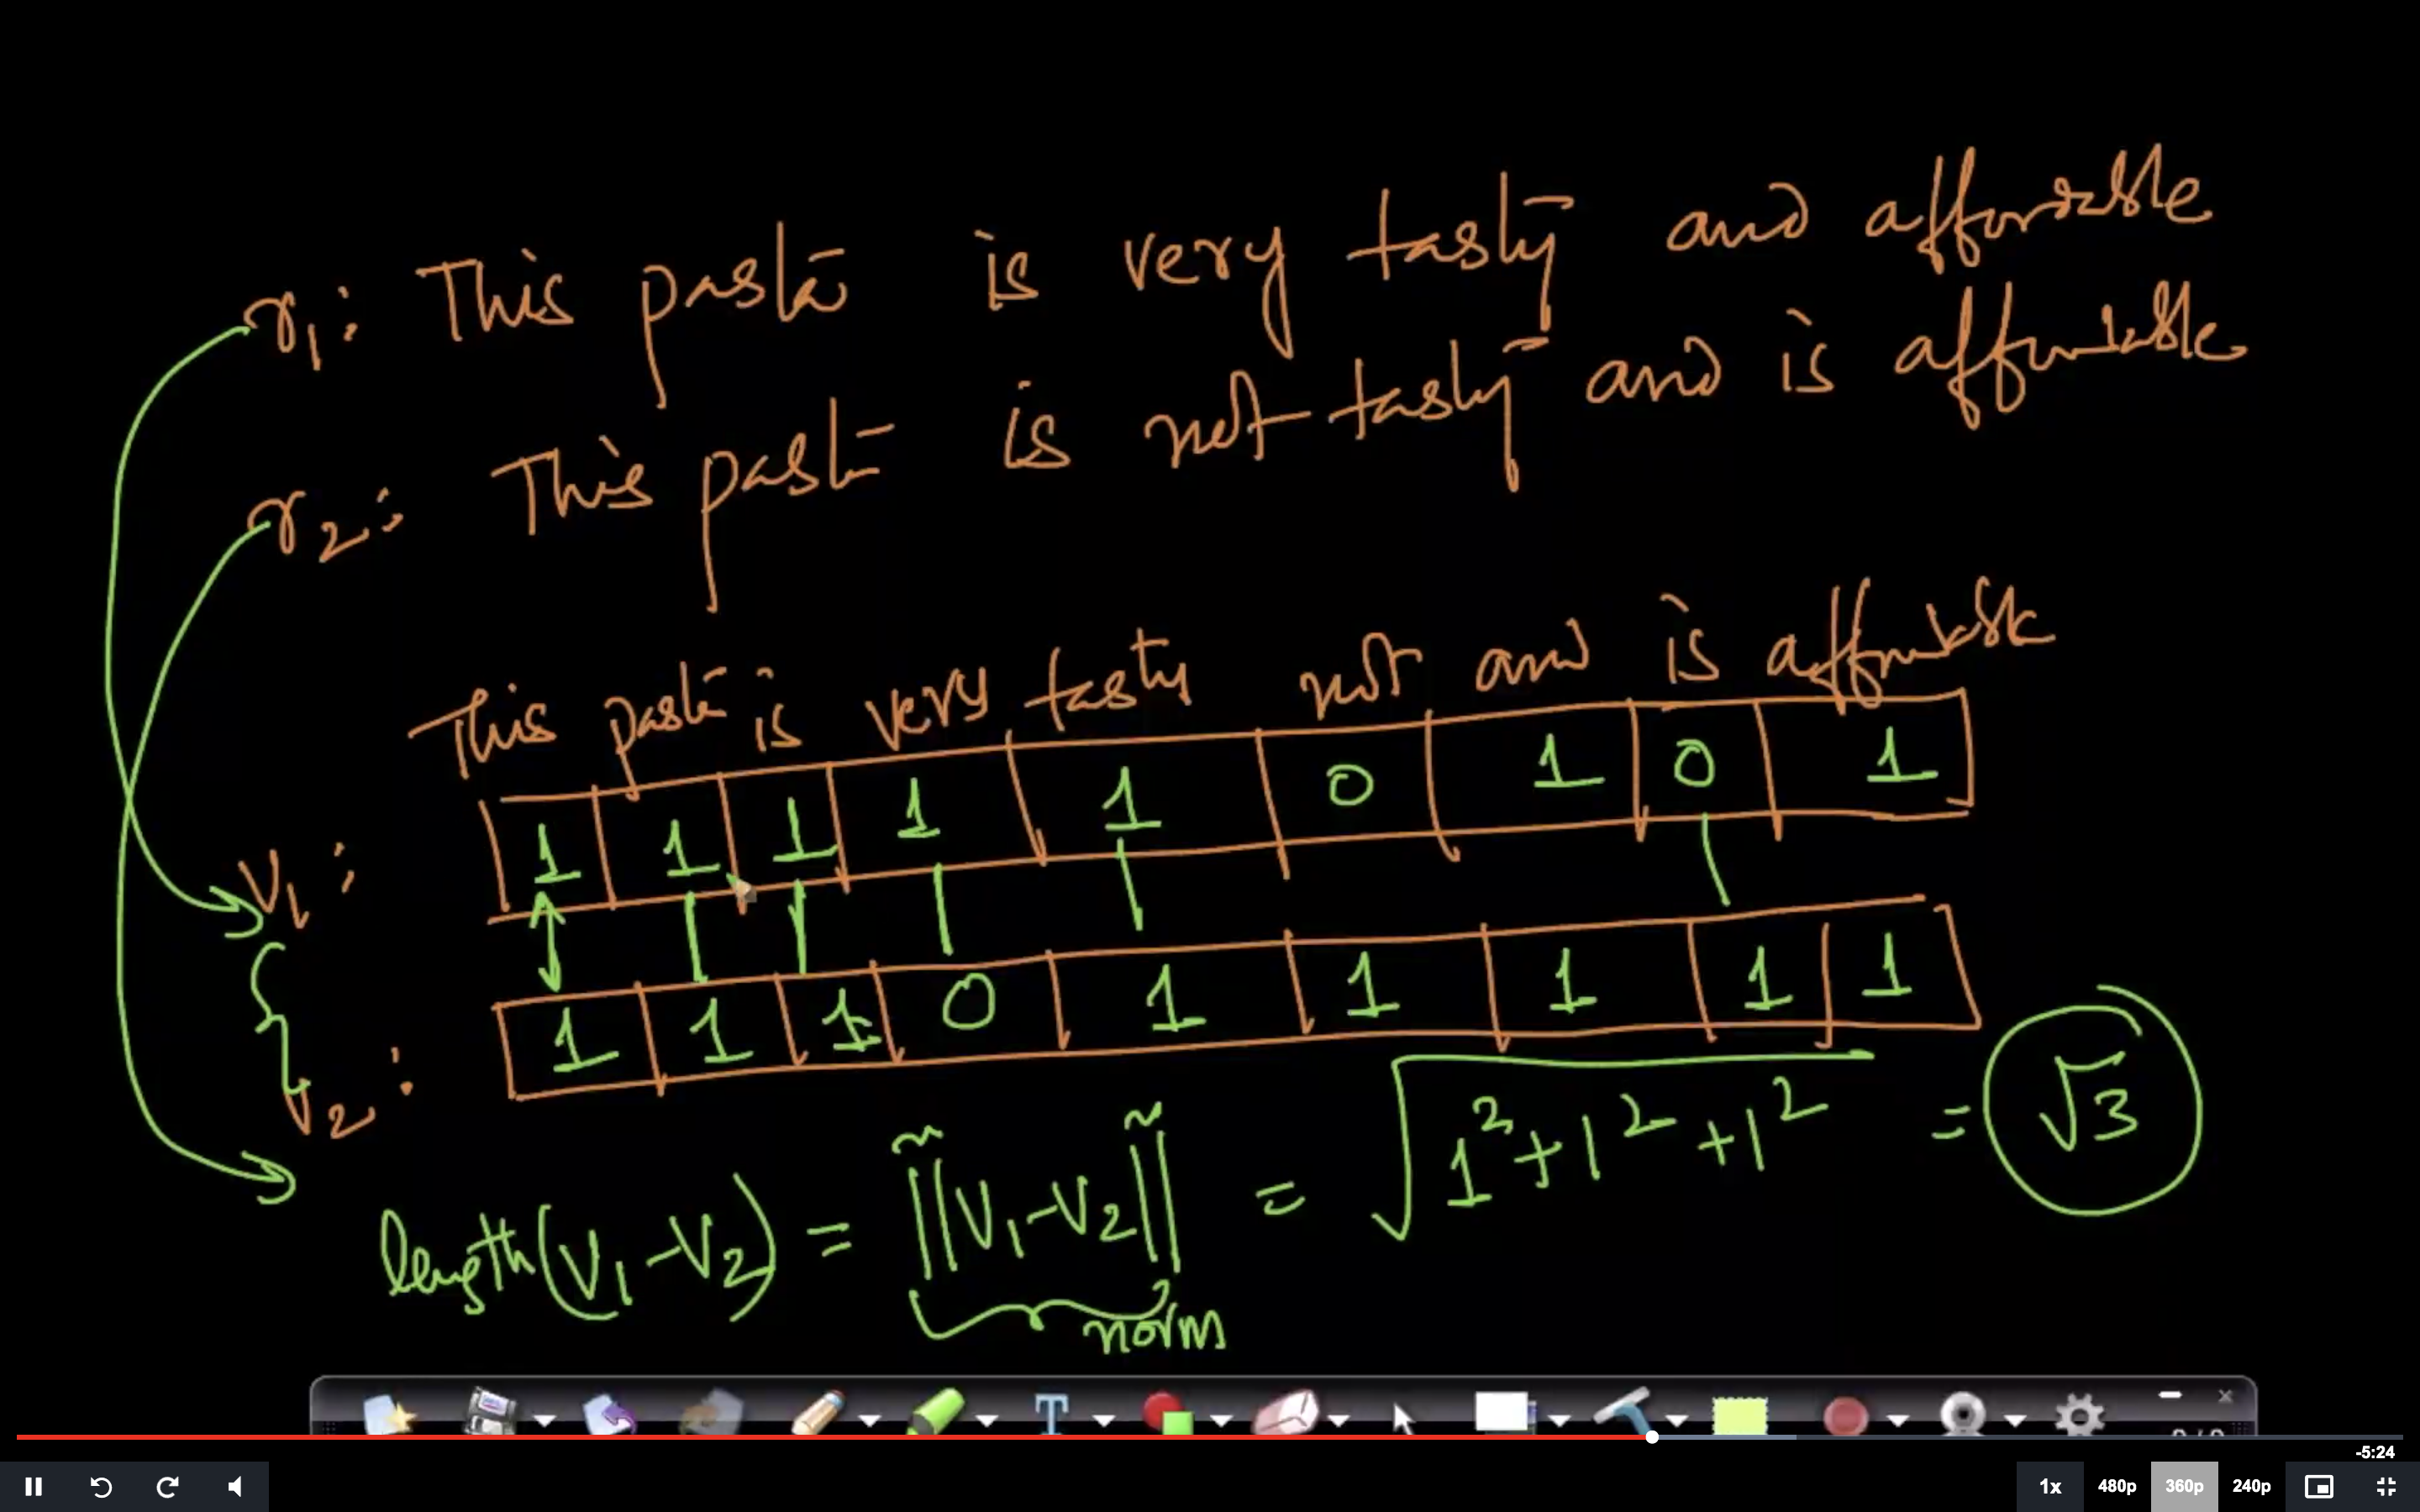 r1: This pasta is very tasty and affordable
r2: This pasta is not tasty and is affordable
This pasta is very tasty not and is affordable
v1: 1 1 1 1 1 0 1 0 1
v2: 1 1 1 0 1 1 1 1 1
length(v1-v2) = ||v1-v2|| = √1²+1²+1² = √3
norm
T
-5:24
1x 480p 360p 240p